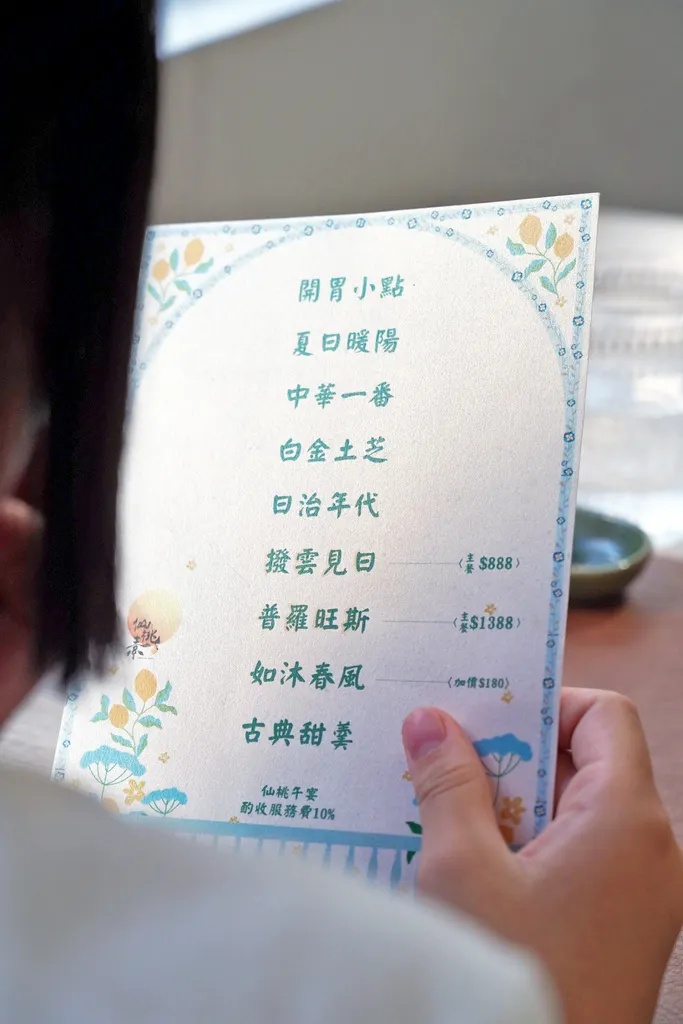 開胃小點
夏日暖陽
中華一番
白金土芝
日治年代
撥雲見日 〈主餐 $888〉
普羅旺斯 〈主餐 $1388〉
如沐春風 〈加價$180〉
古典甜羹
仙桃午宴
酌收服務費10%
仙桃